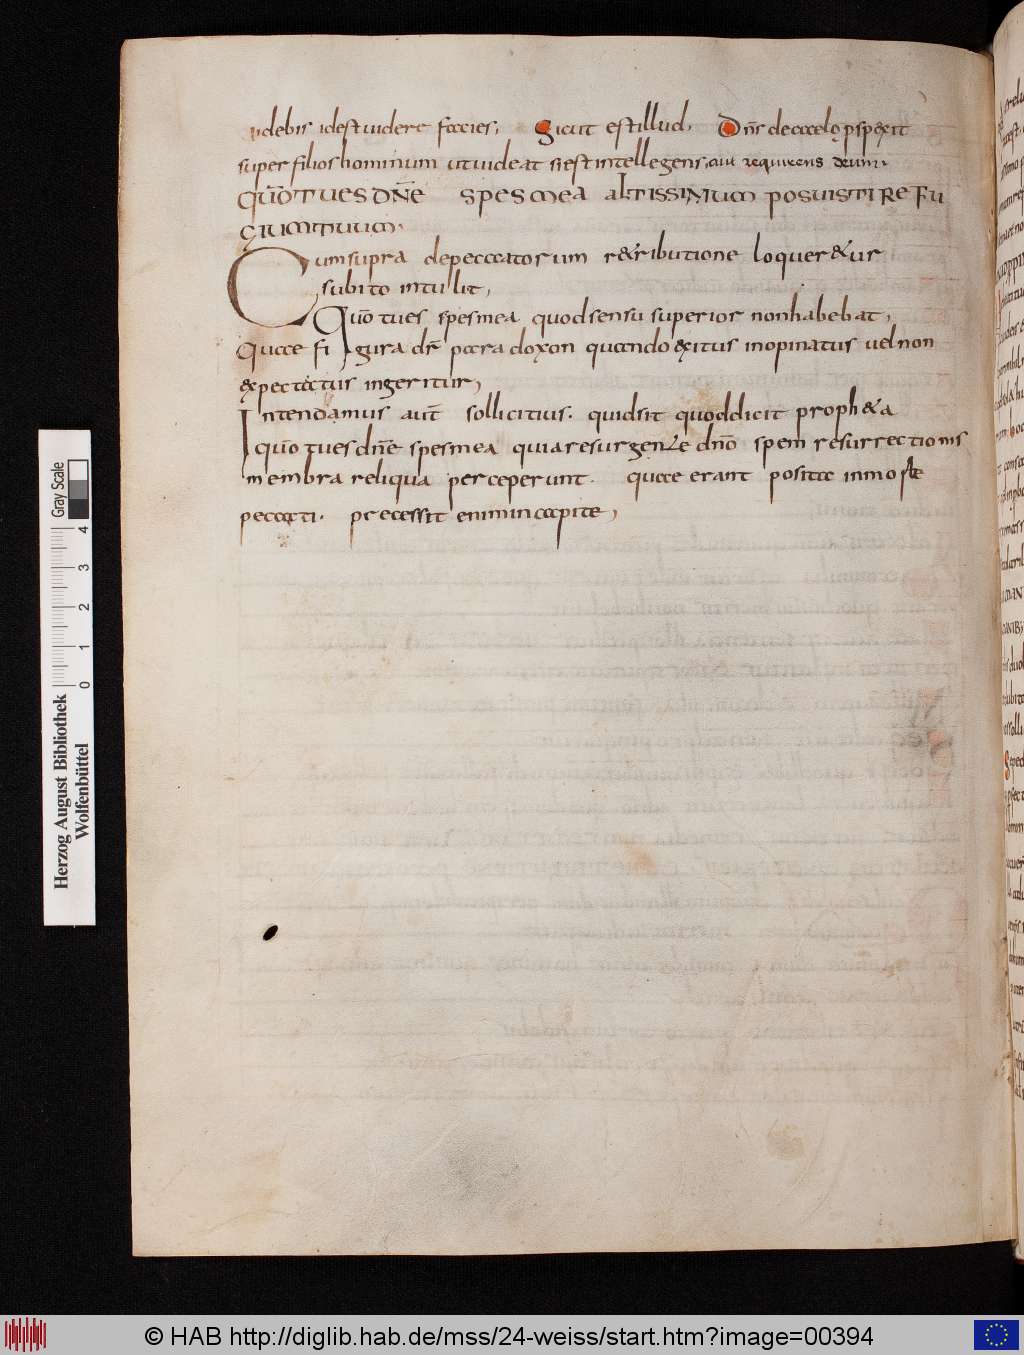 videbis idest videre facies, Sicut est illud, Dns decaelo pspexit
super filios hominum utvideat siest intellegens, aut requirens deum.
QUŌ TU ES DNE SPES MEA ALTISSIMUM POSUISTI REFU
GIUM TUUM.
Cum supra depeccatorum retributione loqueretur
subito intulit,
Quō tues spesmea quodsensu superior nonhabebat,
Quae figura dr paradoxon quando exitus inopinatus velnon
expectatus ingeritur,
Intendamus aut sollicitius. quidsit quoddicit propheta
quō tues dne spesmea quiaresurgente dno spem resurrectionis
membra reliqua perceperunt. quae erant positae inmorte
peccati. precessit enimincapite,
Herzog August Bibliothek
Wolfenbüttel
0 1 2 3 4
Gray Scale
© HAB http://diglib.hab.de/mss/24-weiss/start.htm?image=00394